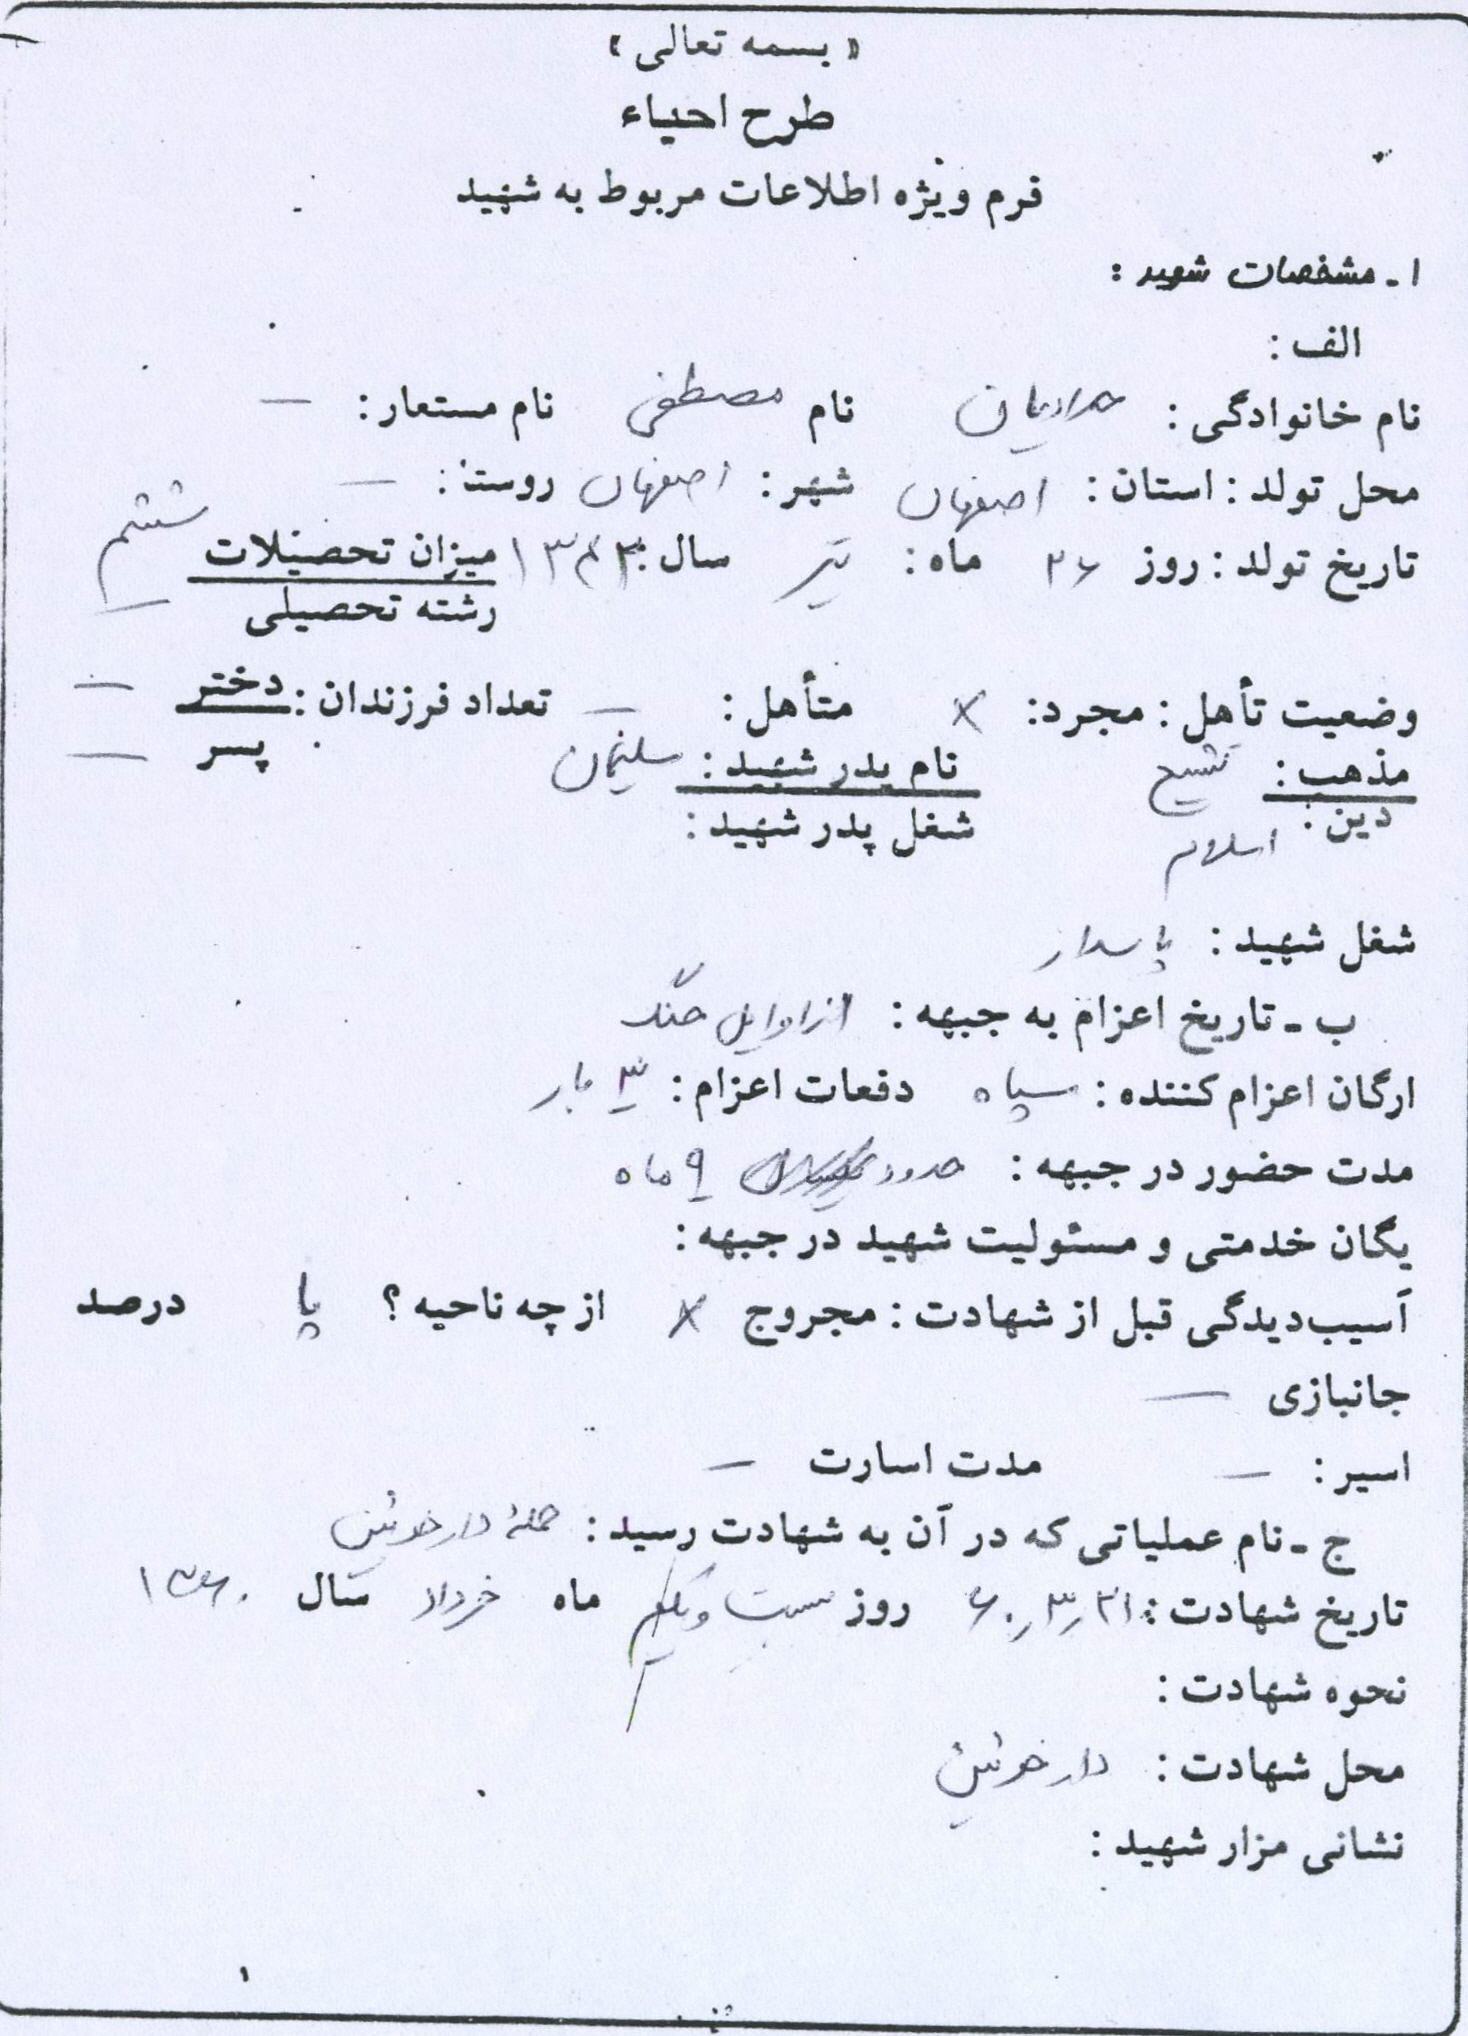 « بسمه تعالی »
طرح احیاء
فرم ویژه اطلاعات مربوط به شهید
۱ - مشخصات شهید :
الف :
نام خانوادگی : نام مصطفی نام مستعار : —
محل تولد : استان : اصفهان شهر : اصفهان روستا : —
تاریخ تولد : روز ۲۶ ماه : تیر سال : میزان تحصیلات ششم
رشته تحصیلی —
وضعیت تأهل : مجرد : × متأهل : — تعداد فرزندان : دختر —
مذهب : تشیع نام پدر شهید : سلیمان پسر —
دین : اسلام شغل پدر شهید :
شغل شهید : پاسدار
ب - تاریخ اعزام به جبهه : از اوایل جنگ
ارگان اعزام کننده : سپاه دفعات اعزام : ۳ بار
مدت حضور در جبهه : حدود ۹ ماه
یگان خدمتی و مسئولیت شهید در جبهه :
آسیب‌دیدگی قبل از شهادت : مجروح × از چه ناحیه ؟ پا درصد
جانبازی —
اسیر : — مدت اسارت —
ج - نام عملیاتی که در آن به شهادت رسید : حمله دارخوئین
تاریخ شهادت : ۶۰٫۳٫۲۱ روز بیست و یکم ماه خرداد سال ۱۳۶۰
نحوه شهادت :
محل شهادت : دارخوئین
نشانی مزار شهید :
۱